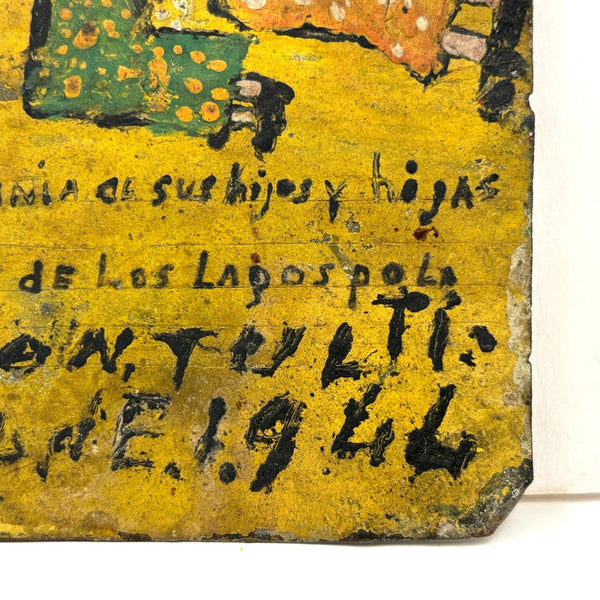 ANIA DE SUS hijos y hijAS
DE LOS LAGOS POLA
ON, TULTI.
DE.1.944